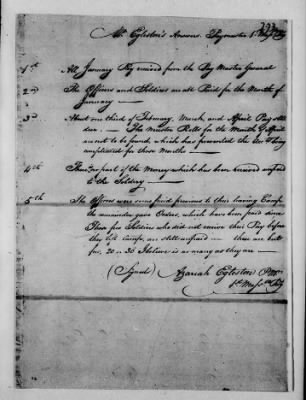 293
Mr Egleston's Answers. Paymaster 1st
1st All January Pay received from the Pay Master General
2nd The Officers and Soldiers are all Paid for the Month of
January
3d About one third of February, March, and April Pay still
due. The Muster Rolls for the Month of April
are not to be found, which has prevented the
compleated for those Months
4th part of the Money which has been received unpaid
to the Soldiery
5th The Officers were some paid previous to their leaving Camp
the remainder gave Orders, which have been paid since
Those few Soldiers who did not receive their Pay before
they left Camp, are still unpaid — there are but
few, 20 or 30 I believe is as many as they are
(Signed) Azariah Egleston P Mr
1st Massts Regt